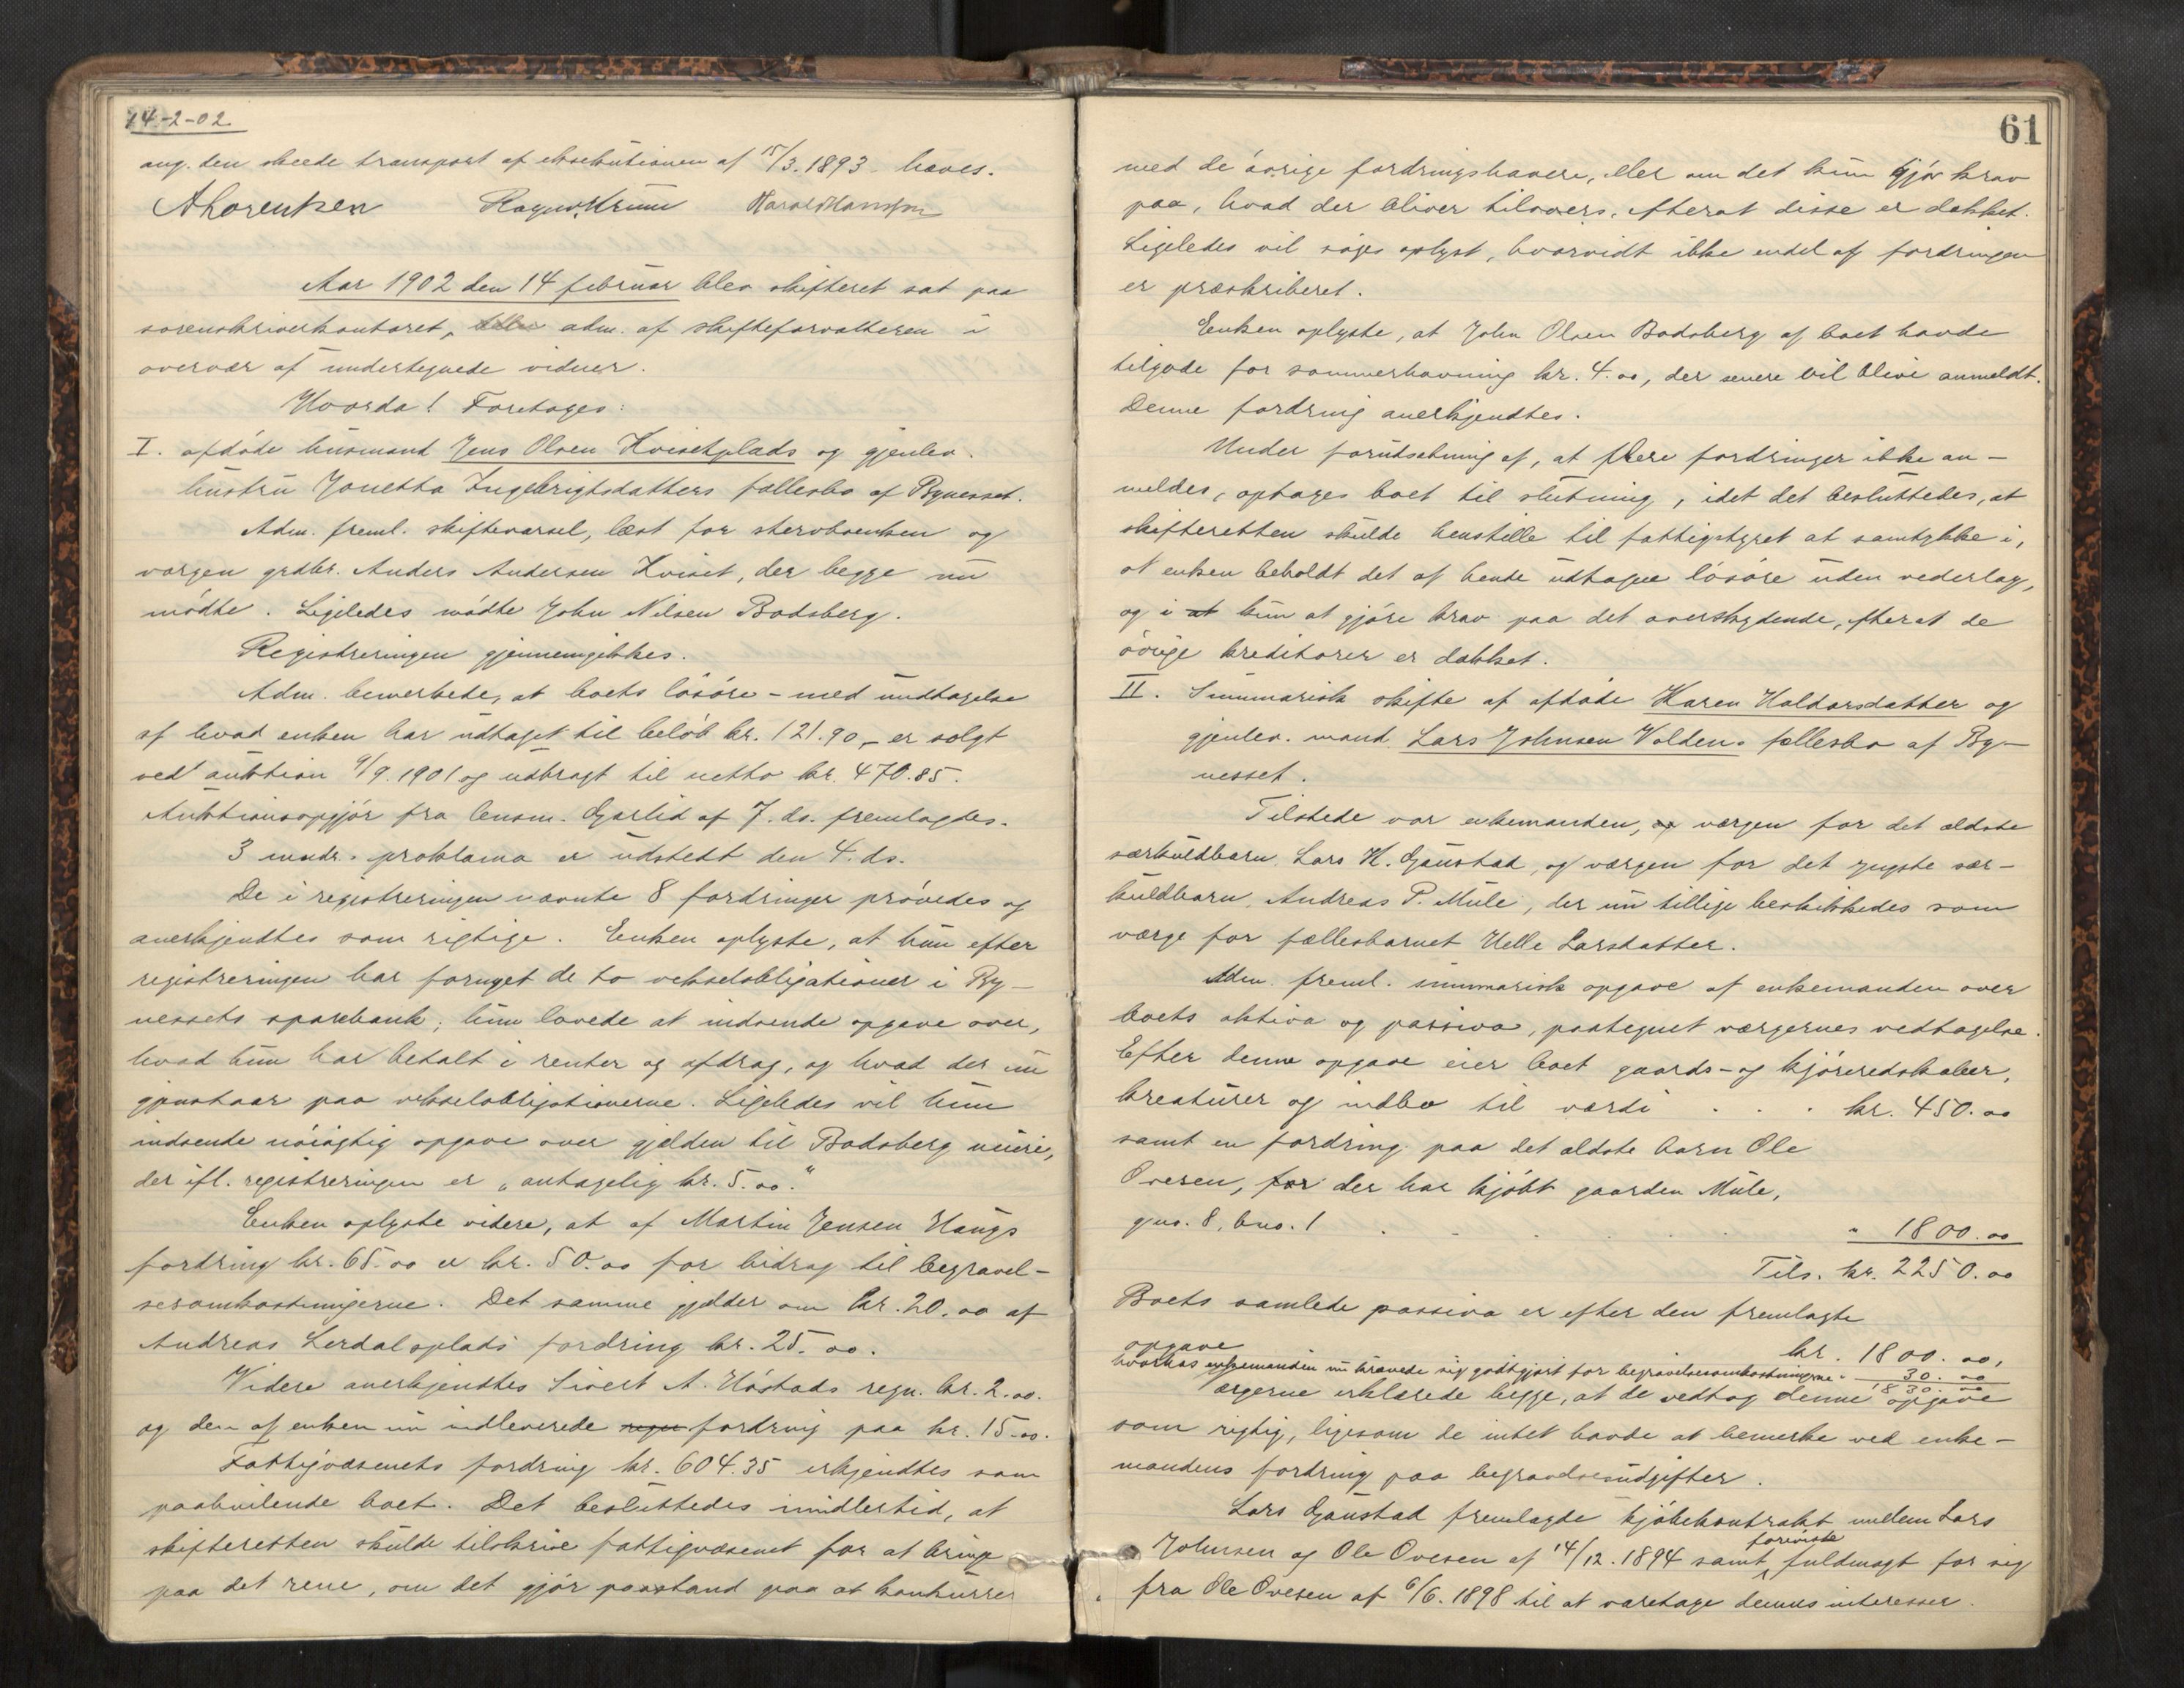 14-2-02
ang. den skeede transport af eksekutionen af 15/3.1893 haves.
A Lorentzen Ragnv. Krum Harald Hansen
Aar 1902 den 14 februar blev skifteret sat paa
sorenskriverkontoret, adm. af skifteforvalteren i
overvær af undertegnede vidner.
Hvorda! Foretoges:
I. afdøde husmand Jens Olsen Kvisetplads og gjenlev.
hustru Jonetta Ingebrigtsdatters fællesbo af Bynesset.
Adm. freml. skiftevarsel, læst for stervboenken og
værgen grdbr. Anders Andersen Kviset, der begge nu
mødte. Ligeledes mødte John Nilsen Bodsberg.
Registreringen gjennemgikkes.
Adm. bemerkede, at boets løsøre – med undtagelse
af hvad enken har udtaget til beløb kr. 121.90 – er solgt
ved auktion 9/9.1901 og udbragt til netto kr. 470.85.
Auktionsopgjør fra lensm. Gjerlid af 7. ds. fremlagdes.
3 mndr.s proklama er udstedt den 4. ds.
De i registreringen nævnte 8 fordringer prøvedes og
anerkjendtes som rigtige. Enken oplyste, at hun efter
registreringen har fornyet de to vekselobligationer i By-
nessets sparebank; hun lovede at indsende opgave over,
hvad hun har betalt i renter og afdrag, og hvad der nu
gjenstaar paa vekselobligationerne. Ligeledes vil hun
indsende nøiagtig opgave over gjelden til Bodsberg meieri,
der ifl. registreringen er „antagelig kr. 5.00."
Enken oplyste videre, at af Martin Jensen Haugs
fordring kr. 65.00 er kr. 50.00 for bidrag til begravel-
sesomkostningerne. Det samme gjelder om kr. 20.00 af
Andreas Lerdalsplads fordring kr. 25.00.
Videre anerkjendtes Sivert A. Høstads regn. kr. 2.00.
og den af enken nu indleverede regn fordring paa kr. 15.00.
Fattigvæsenets fordring kr. 604.35 erkjendtes som
paahvilende boet. Det besluttedes imidlertid, at
skifteretten skulde tilskrive fattigvæsenet for at bringe
paa det rene, om det gjør paastand paa at konkurrere
61
med de øvrige fordringshavere, eller om det kun gjør krav
paa, hvad der bliver tilovers, efterat disse er dækket.
Ligeledes vil søges oplyst, hvorvidt ikke endel af fordringen
er præskriberet.
Enken oplyste, at John Olsen Bodsberg af boet havde
tilgode for sommerhavning kr. 4.00, der senere vil blive anmeldt.
Denne fordring anerkjendtes.
Under forudsetning af, at flere fordringer ikke an-
meldes, optages boet til slutning, idet det besluttedes, at
skifteretten skulde henstille til fattigstyret at samtykke i,
at enken beholdt det af hende udtagne løsøre uden vederlag,
og i at kun at gjøre krav paa det overskydende, efterat de
øvrige kreditorer er dækket.
II. Summarisk skifte af afdøde Karen Haldorsdatter og
gjenlev. mand Lars Johnsen Voldens fællesbo af By-
nesset.
Tilstede var enkemanden, og værgen for det ældste
særkuldbarn, Lars H. Gaustad, og værgen for det yngste sær-
kuldbarn, Andreas P. Mule, der nu tillige beskikkedes som
værge for fællesbarnet Helle Larsdatter.
Adm. freml. summarisk opgave af enkemanden over
boets aktiva og passiva, paategnet værgernes vedtagelse.
Efter denne opgave eier boet gaards- og kjøreredskaber,
kreaturer og indbo til værdi . . . kr. 450.00
samt en fordring paa det ældste barn Ole
Ovesen, for der har kjøbt gaarden Mule,
gno. 8, bno. 1 . . . . . . " 1800.00
Tils. kr. 2250.00
Boets samlede passiva er efter den fremlagte
opgave kr. 1800.00,
hvorhos enkemanden nu krævede sig godtgjort for begravelsesomkostningerne " 30.00
1830.00
Værgerne erklærede begge, at de vedtog denne opgave
som rigtig, ligesom de intet havde at bemerke ved enke-
mandens fordring paa begravelsesudgifter.
Lars Gaustad fremlagde kjøbekontrakt mellem Lars
Johnsen og Ole Ovesen af 14/12.1894 samt foreviste fuldmagt for sig
fra Ole Ovesen af 6/6.1898 til at varetage dennes interesser.